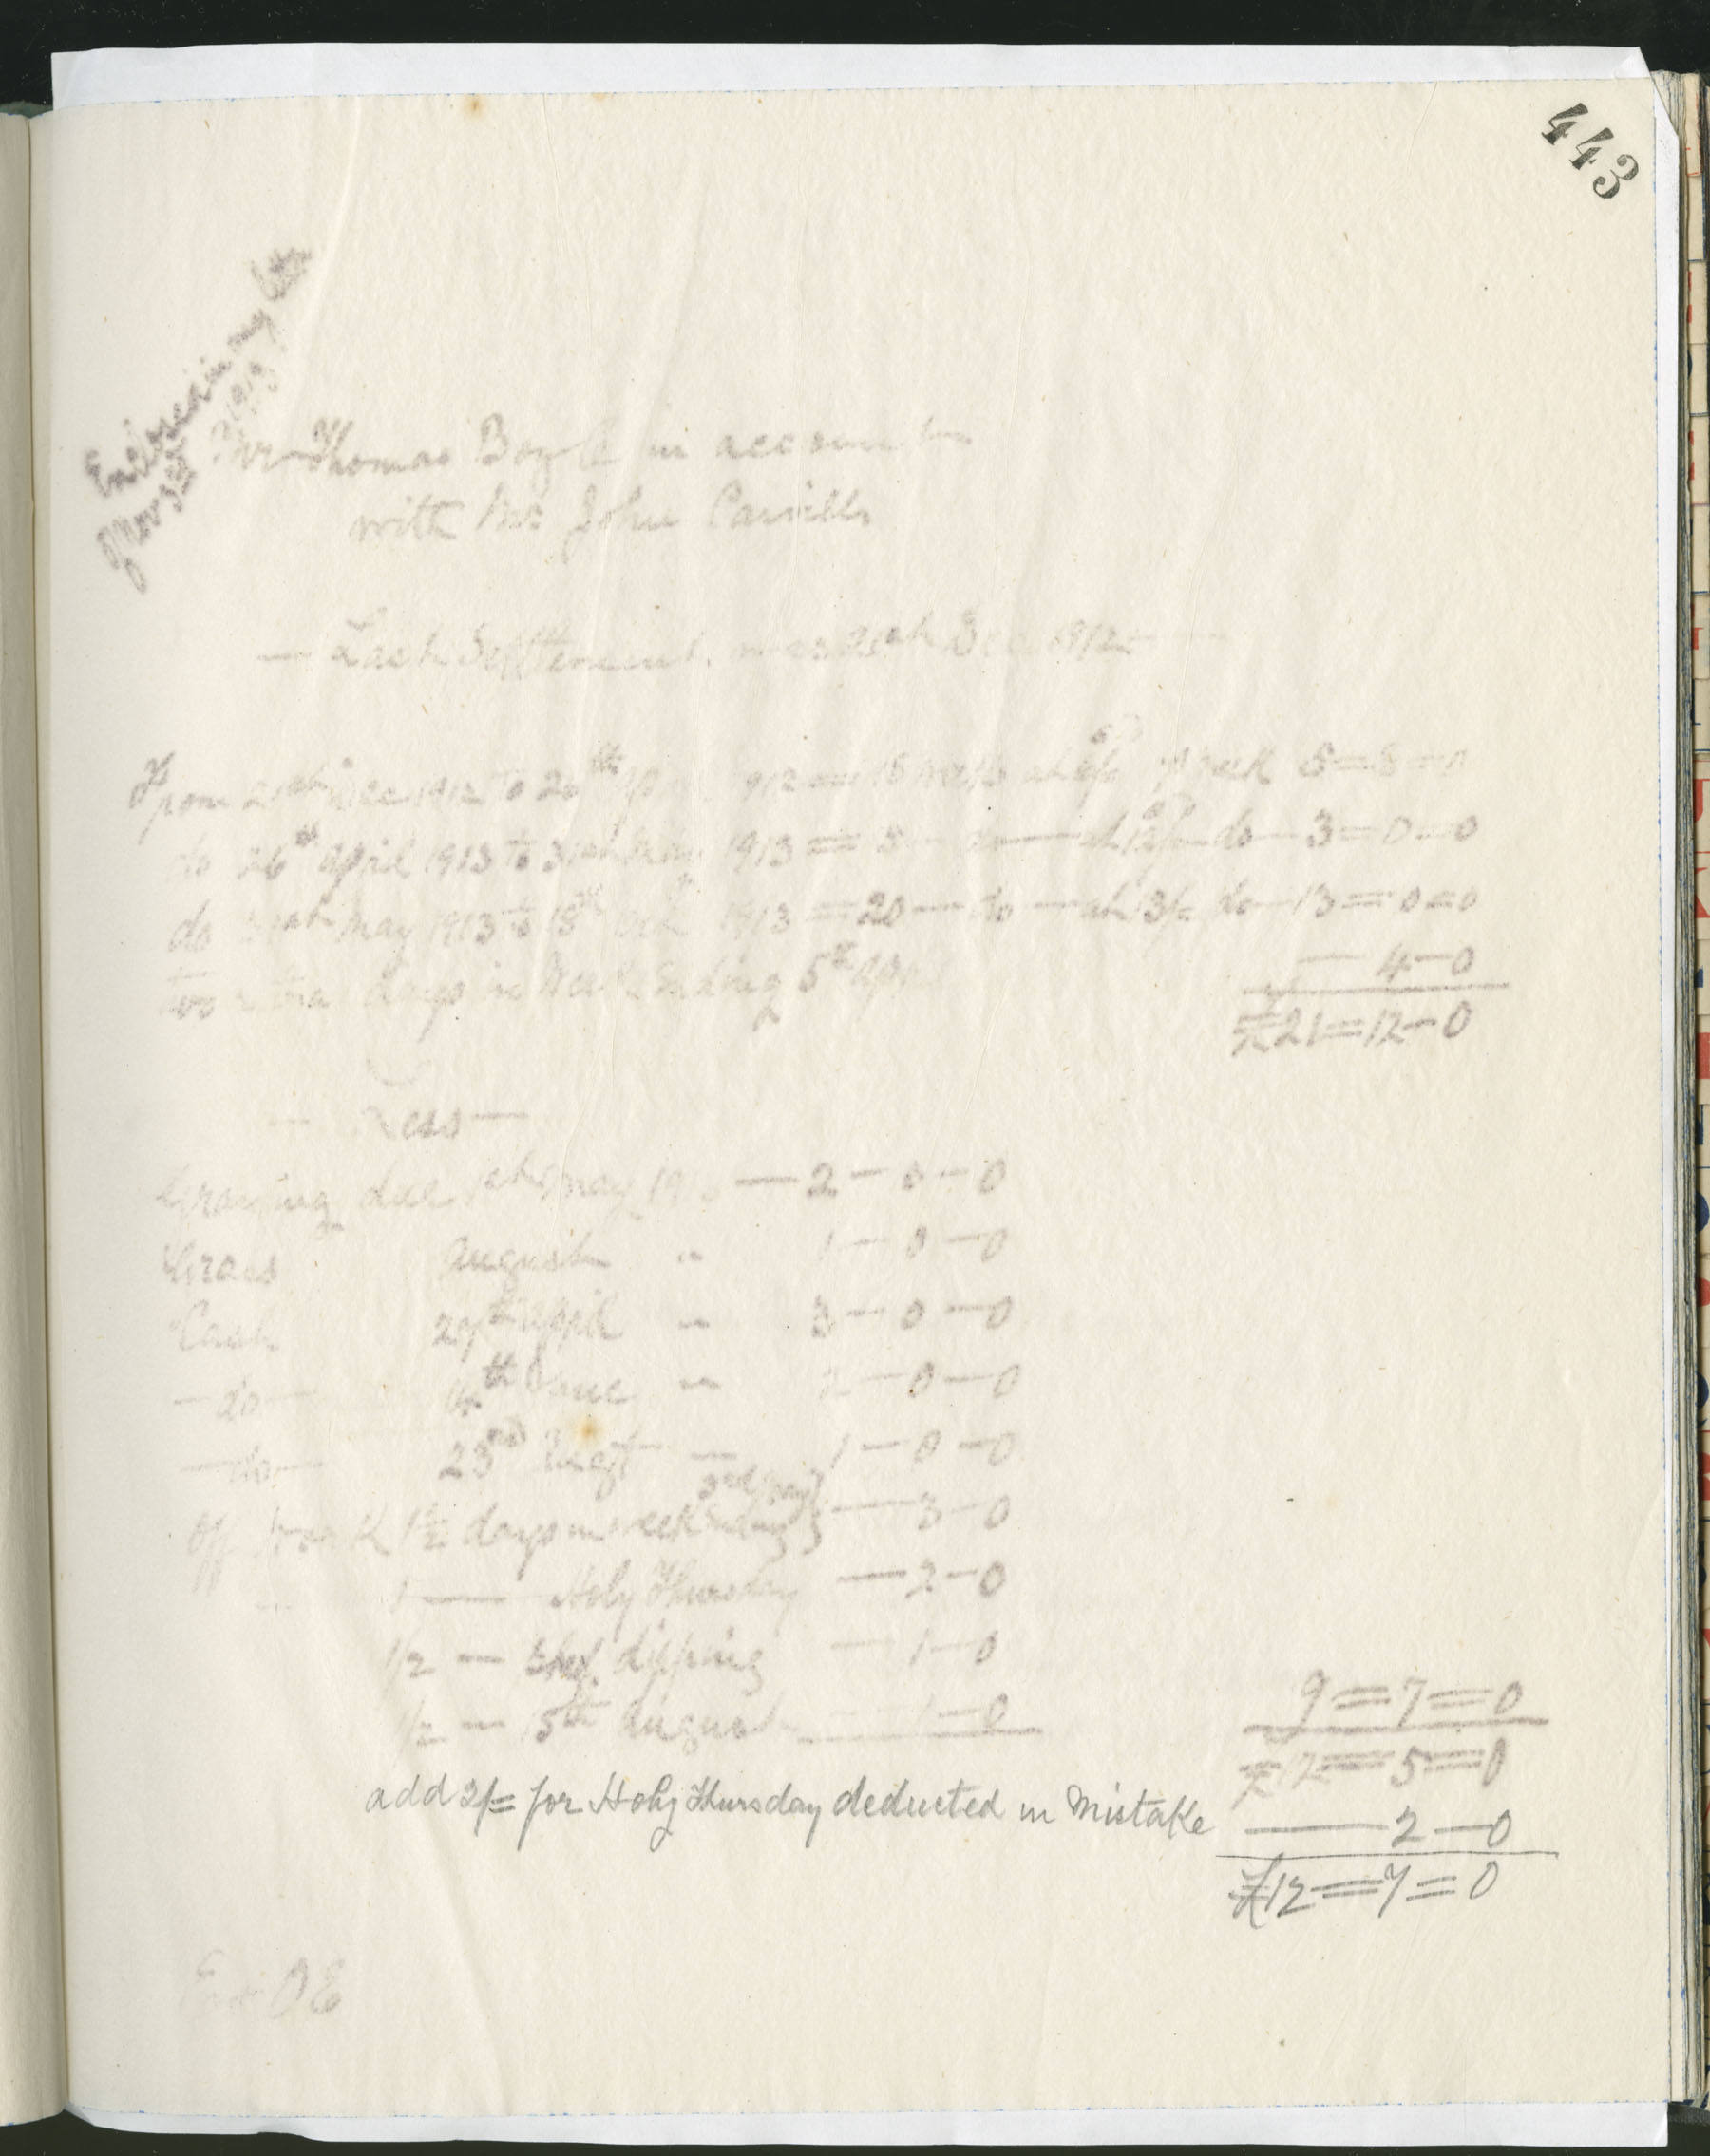 443
Enclosed in my letter
Nov 3rd 1913
Mr Thomas Boyle in account
with Mr John
— Last Settlement was 21st Dec 1912 —
From 21st Dec 1912 to 26th April 1912 = 18 weeks at 6/= P week 5=8=0
do 26th April 1913 to 31st May 1913 = 5 — do — at 12/= do — 3=0=0
do 31st May 1913 to 18th Oct 1913 = 20 — do — at 13/= do — 13=0=0
two extra days in Week Ending 5th April — 4—0
£21=12—0
— Less —
Grazing due 1st May 1913 — 2—0—0
Grass August " 1—0—0
Cash 29th April " 3—0—0
— do — 14th June " 2—0—0
— do — 23rd Augt — 1—0—0
Off Work 1½ days in week Ending 3rd May } — 3—0
1 — Holy Thursday — 2—0
1/2 — dipping — 1—0
1/2 — 15th August — 1—0
9=7=0
£12=5=0
add 2/= for Holy Thursday deducted in Mistake — 2—0
£12=7=0
E & O E